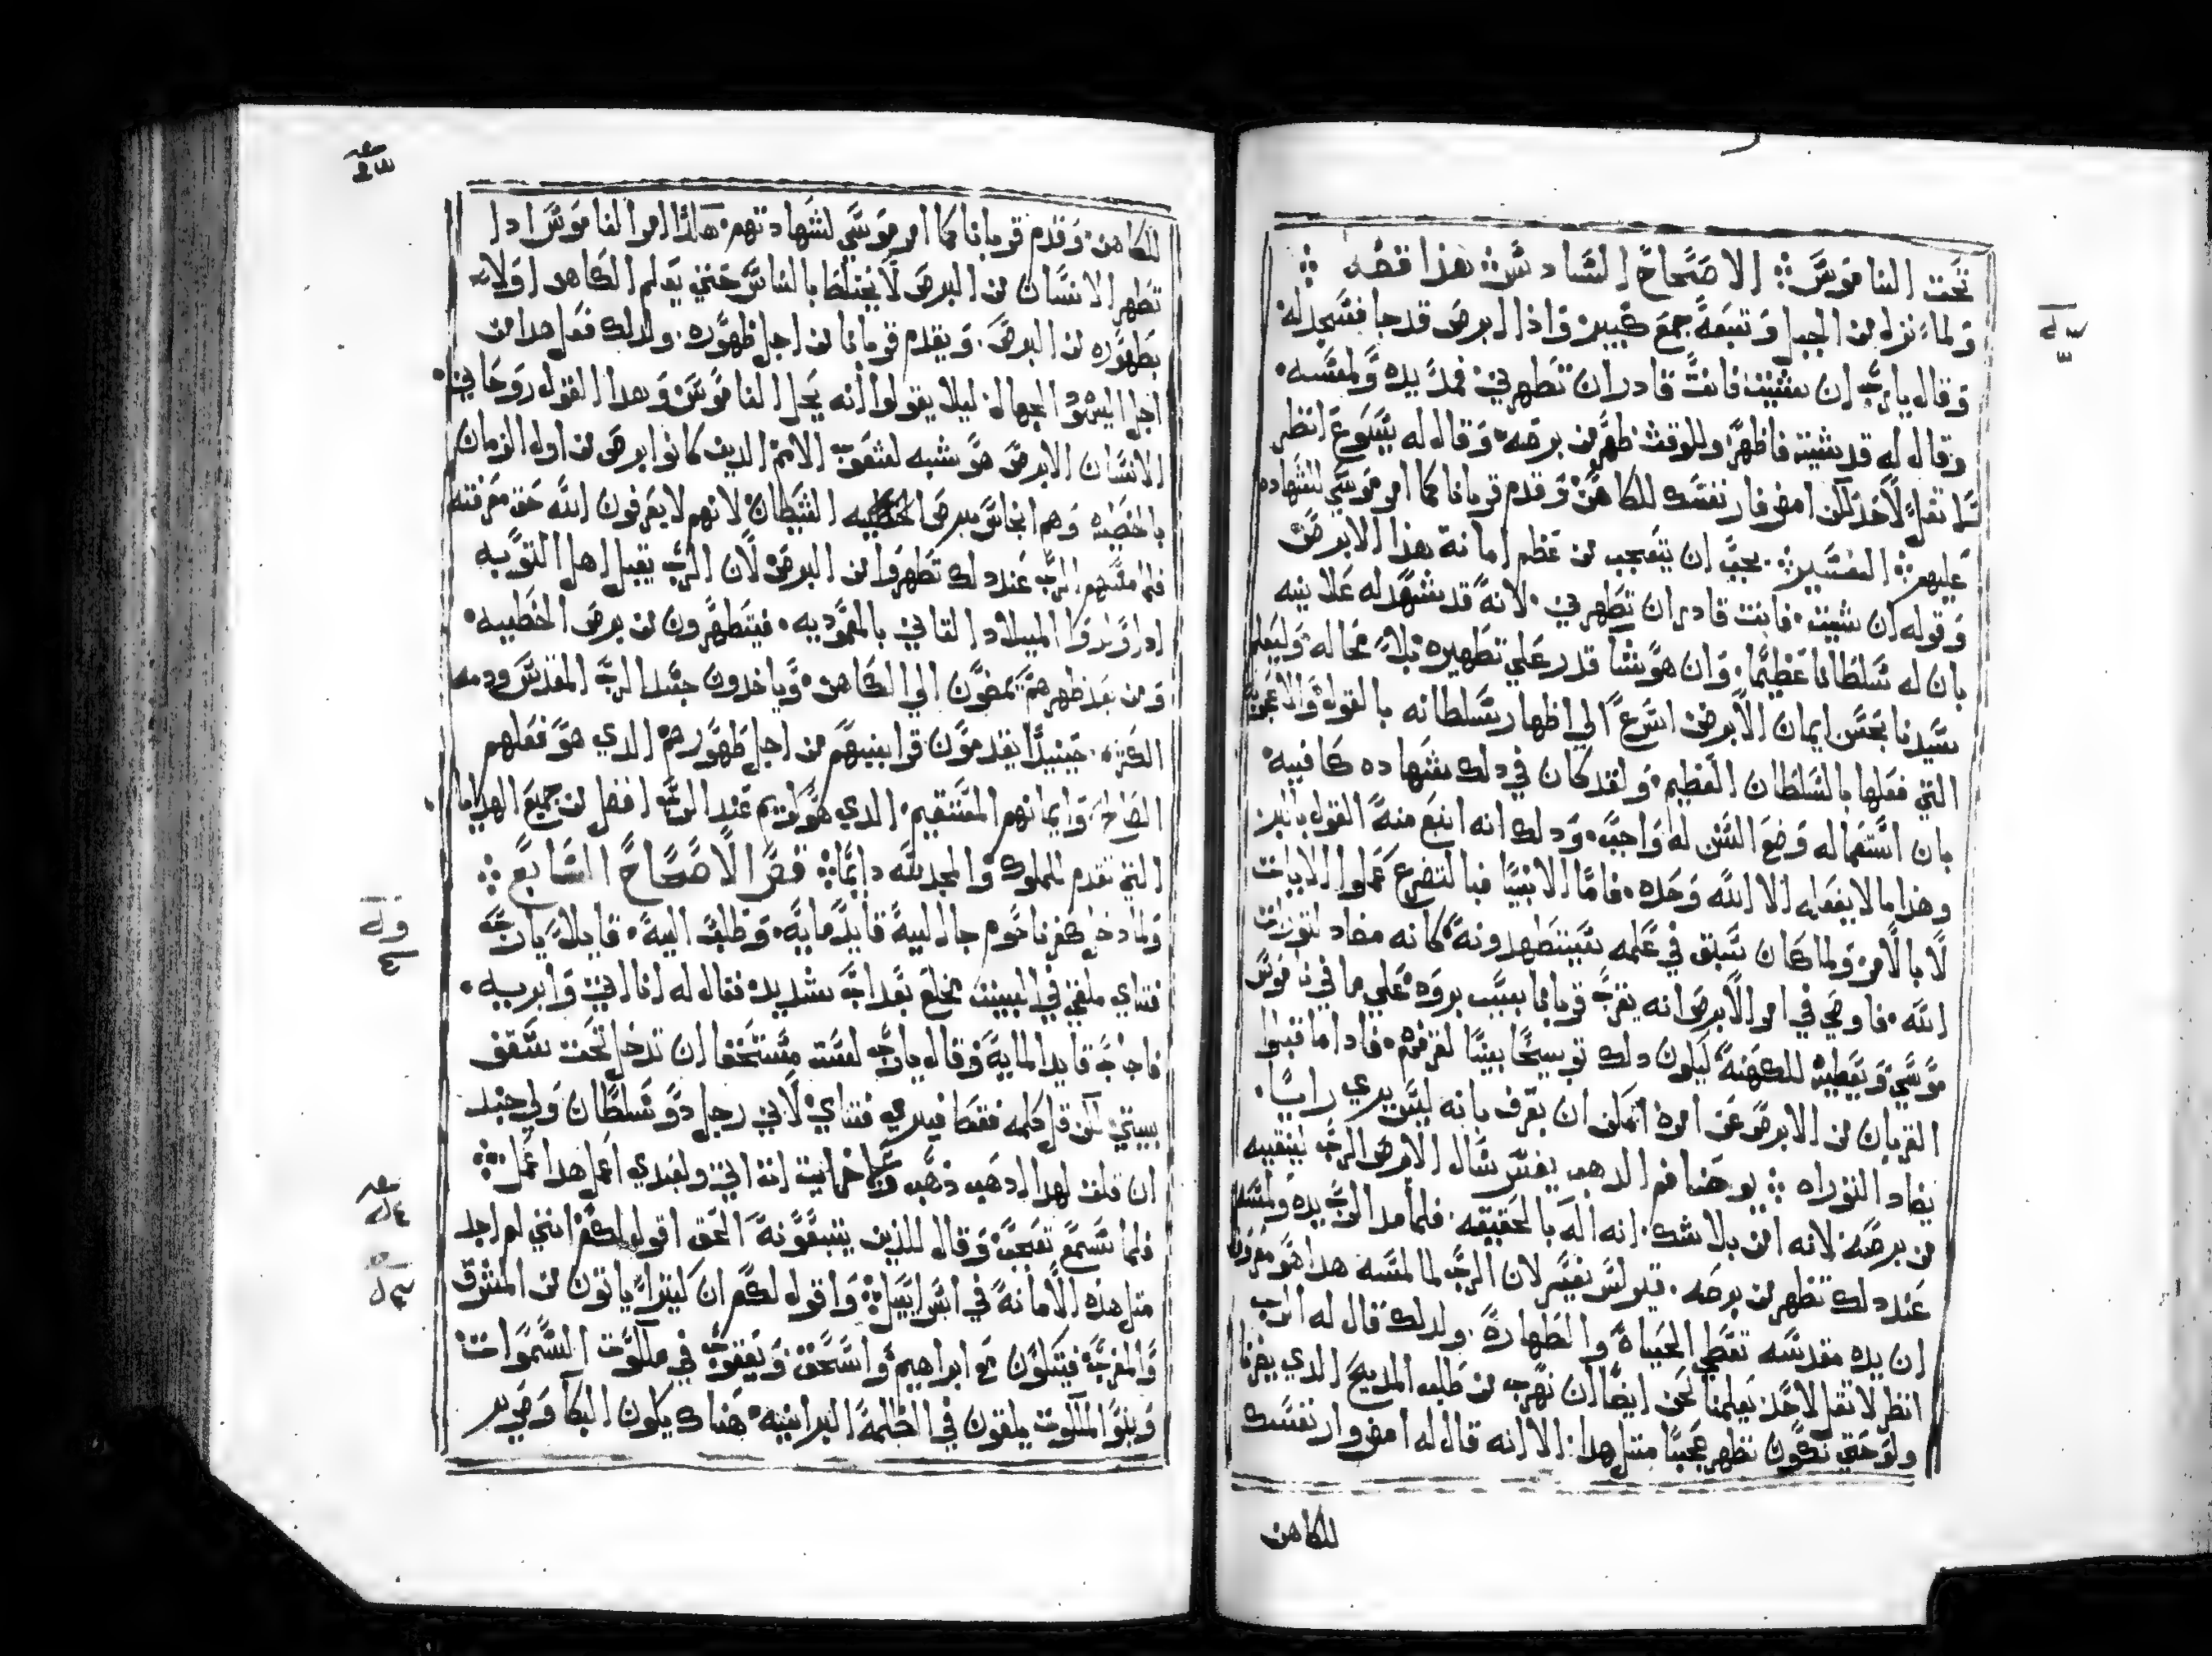 تحت الناموس ⁘ الاصحاح السادس ⁘ هذا فصه ⁘
ولما نزل من الجبل وتبعه جمع كبير واذا ابرص قد جا فسجد له
وقال يارب ان شيت فانت قادر ان تطهرني فمد يده ولمسه
وقال له قد شيت فاطهر وللوقت طهر من برصه وقال له يسوع انظر
لا تقل لاحد لكن امض فار نفسك للكاهن وقدم قربانا كما امر موسي لشهاده
عليهم ⁘ التفسير ⁘ يجب ان يتعجب من عظم امانة هذا الابرص
وقوله ان شيت فانت قادر ان تطهرني لانه قد شهد له علانيه
بان له سلطانا عظيما وان هو شا قدر علي تطهيره بلا محاله وليعلم
سيدنا بحسن ايمان الابرص اسرع الي اظهار سلطانه بالقول والاعجوبه
التي فعلها بالسلطان العظيم ولقد كان في دلك شهاده كافيه
بان استعماله وضع السنن له واجب ودلك انه اتبع منه القول بالبر
وهذا ما لا يفعله الا الله وحده فاما الانبيا فبالتضرع عملوا الايات
لا بالامر ولما كان سبق في علمه سيتطهدونه كانه مضاد لتوراة
الله فاوصي في امر الابرص انه يقرب قربانا بسبب بروه علي ما في ناموس
موسي ويعطيه للكهنه ليكون دلك توبيخا بينا لغرقهم فاد اما قبلوا
القربان من الابرص عن امره امكن ان يعرف بانه ليس يري رايا
يضاد التوراه ⁘ يوحنا فم الدهب يفسر سال الابرص الرب لينقيه
من برصه لانه امن بلا شك انه اله بالحقيقه فلما مد الرب يده ولمسه
عند دلك تطهر من برصه كيرلس يفسر لان الرب لما لمسه هدا هو معروف
ان يده مقدسه تعطي الحياة والطهارة ولدلك قال له الرب
انظر لا تقل لاحد يعلمنا نحن ايضا ان نهرب من طلب المديح الدي يضرنا
ولو حتي نكون نظهر عجبا متل هدا الا انه قال له امض وار نفسك
للكاهن
للكاهن وقدم قربانا كما امر موسي لشهادتهم هكدا امر الناموس ادا
تطهر الانسان من البرص لا يختلط بالناس حتي يعلم الكاهن اولا
بطهوره من البرص ويقدم قربانا من اجل طهوره ولدلك فعل هدا من
اجل اليهود الجهال ليلا يقولوا انه يحل الناموس وهدا القول روحاني
الانسان الابرص هو شبه لشعوب الامم الدين كانوا برص من اول الزمان
بالخطيه وهم انجاس ببرص الخطيه الشيطان لانهم لا يعرفون الله حق معرفته
فلما لمسهم الرب عند دلك تطهروا من البرص لان الرب يقبل اهل التوبه
ادا ولدوا الميلاد التاني بالمعموديه فيتطهرون من برص الخطييه
ومن بعد طهرهم يمضون الي الكاهن وياخدون جسد الرب المقدس ودمه
الكرم حينيدا يقدمون قرابينهم من اجل طهورهم الدي هو فعلهم
الصالح وايمانهم المستقيم الدي هو كريم عند الرب افضل من جميع الهدايا
التي تقدم للملوك والمجد لله دايما ⁘ فص الاصحاح السابع ⁘
ولما دخل كفرناحوم جا اليه قايد مايه وطلب اليه قايلا يارب
فتاي ملقي في البيت مخلع بعداب شديد فقال له انا اتي وابريه
فاجاب قايد المايه وقال يارب لست مستحقا ان تدخل تحت سقف
بيتي لكن قل كلمه فقط فيبري فتاي لاني رجل دو سلطان ولي جند
ان قلت لهدا ادهب دهب ولاخر ايت اتي ولعبدي اعمل هدا عمل ⁘
فلما سمع تعجب وقال للذين يتبعونه الحق اقول لكم انني لم اجد
متل هده الامانه في اسراييل واقول لكم ان كتيرا ياتون من المشرق
والمغرب فيتكون مع ابراهيم واسحق ويعقوب في ملكوت السموات
وبنو الملكوت يلقون في الظلمة البرانيه هناك يكون البكا وصرير